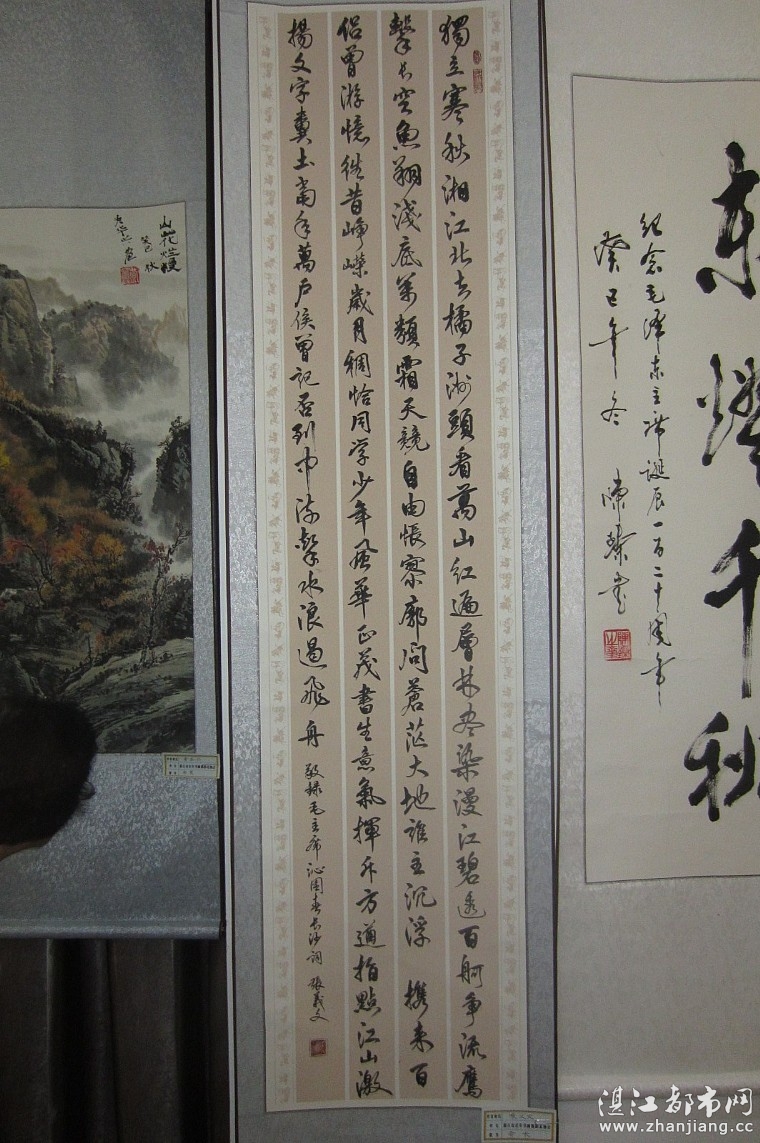 东 千秋
纪念毛泽东主席诞辰一百二十周年
癸巳年冬 陳
獨立寒秋湘江北去橘子洲頭看萬山紅遍層林尽染漫江碧透百舸争流鷹
擊長空魚翔淺底萬類霜天競自由悵寥廓問蒼茫大地誰主沉浮 携来百
侣曾游憶往昔崢嶸歲月稠恰同学少年風華正茂書生意氣揮斥方遒指點江山激
揚文字糞土當年萬户侯曾記否到中流擊水浪遏飛舟 敬録毛主席沁園春長沙詞 張義文
山花烂漫
癸巳秋
湛江都市网
www.zhanjiang.cc